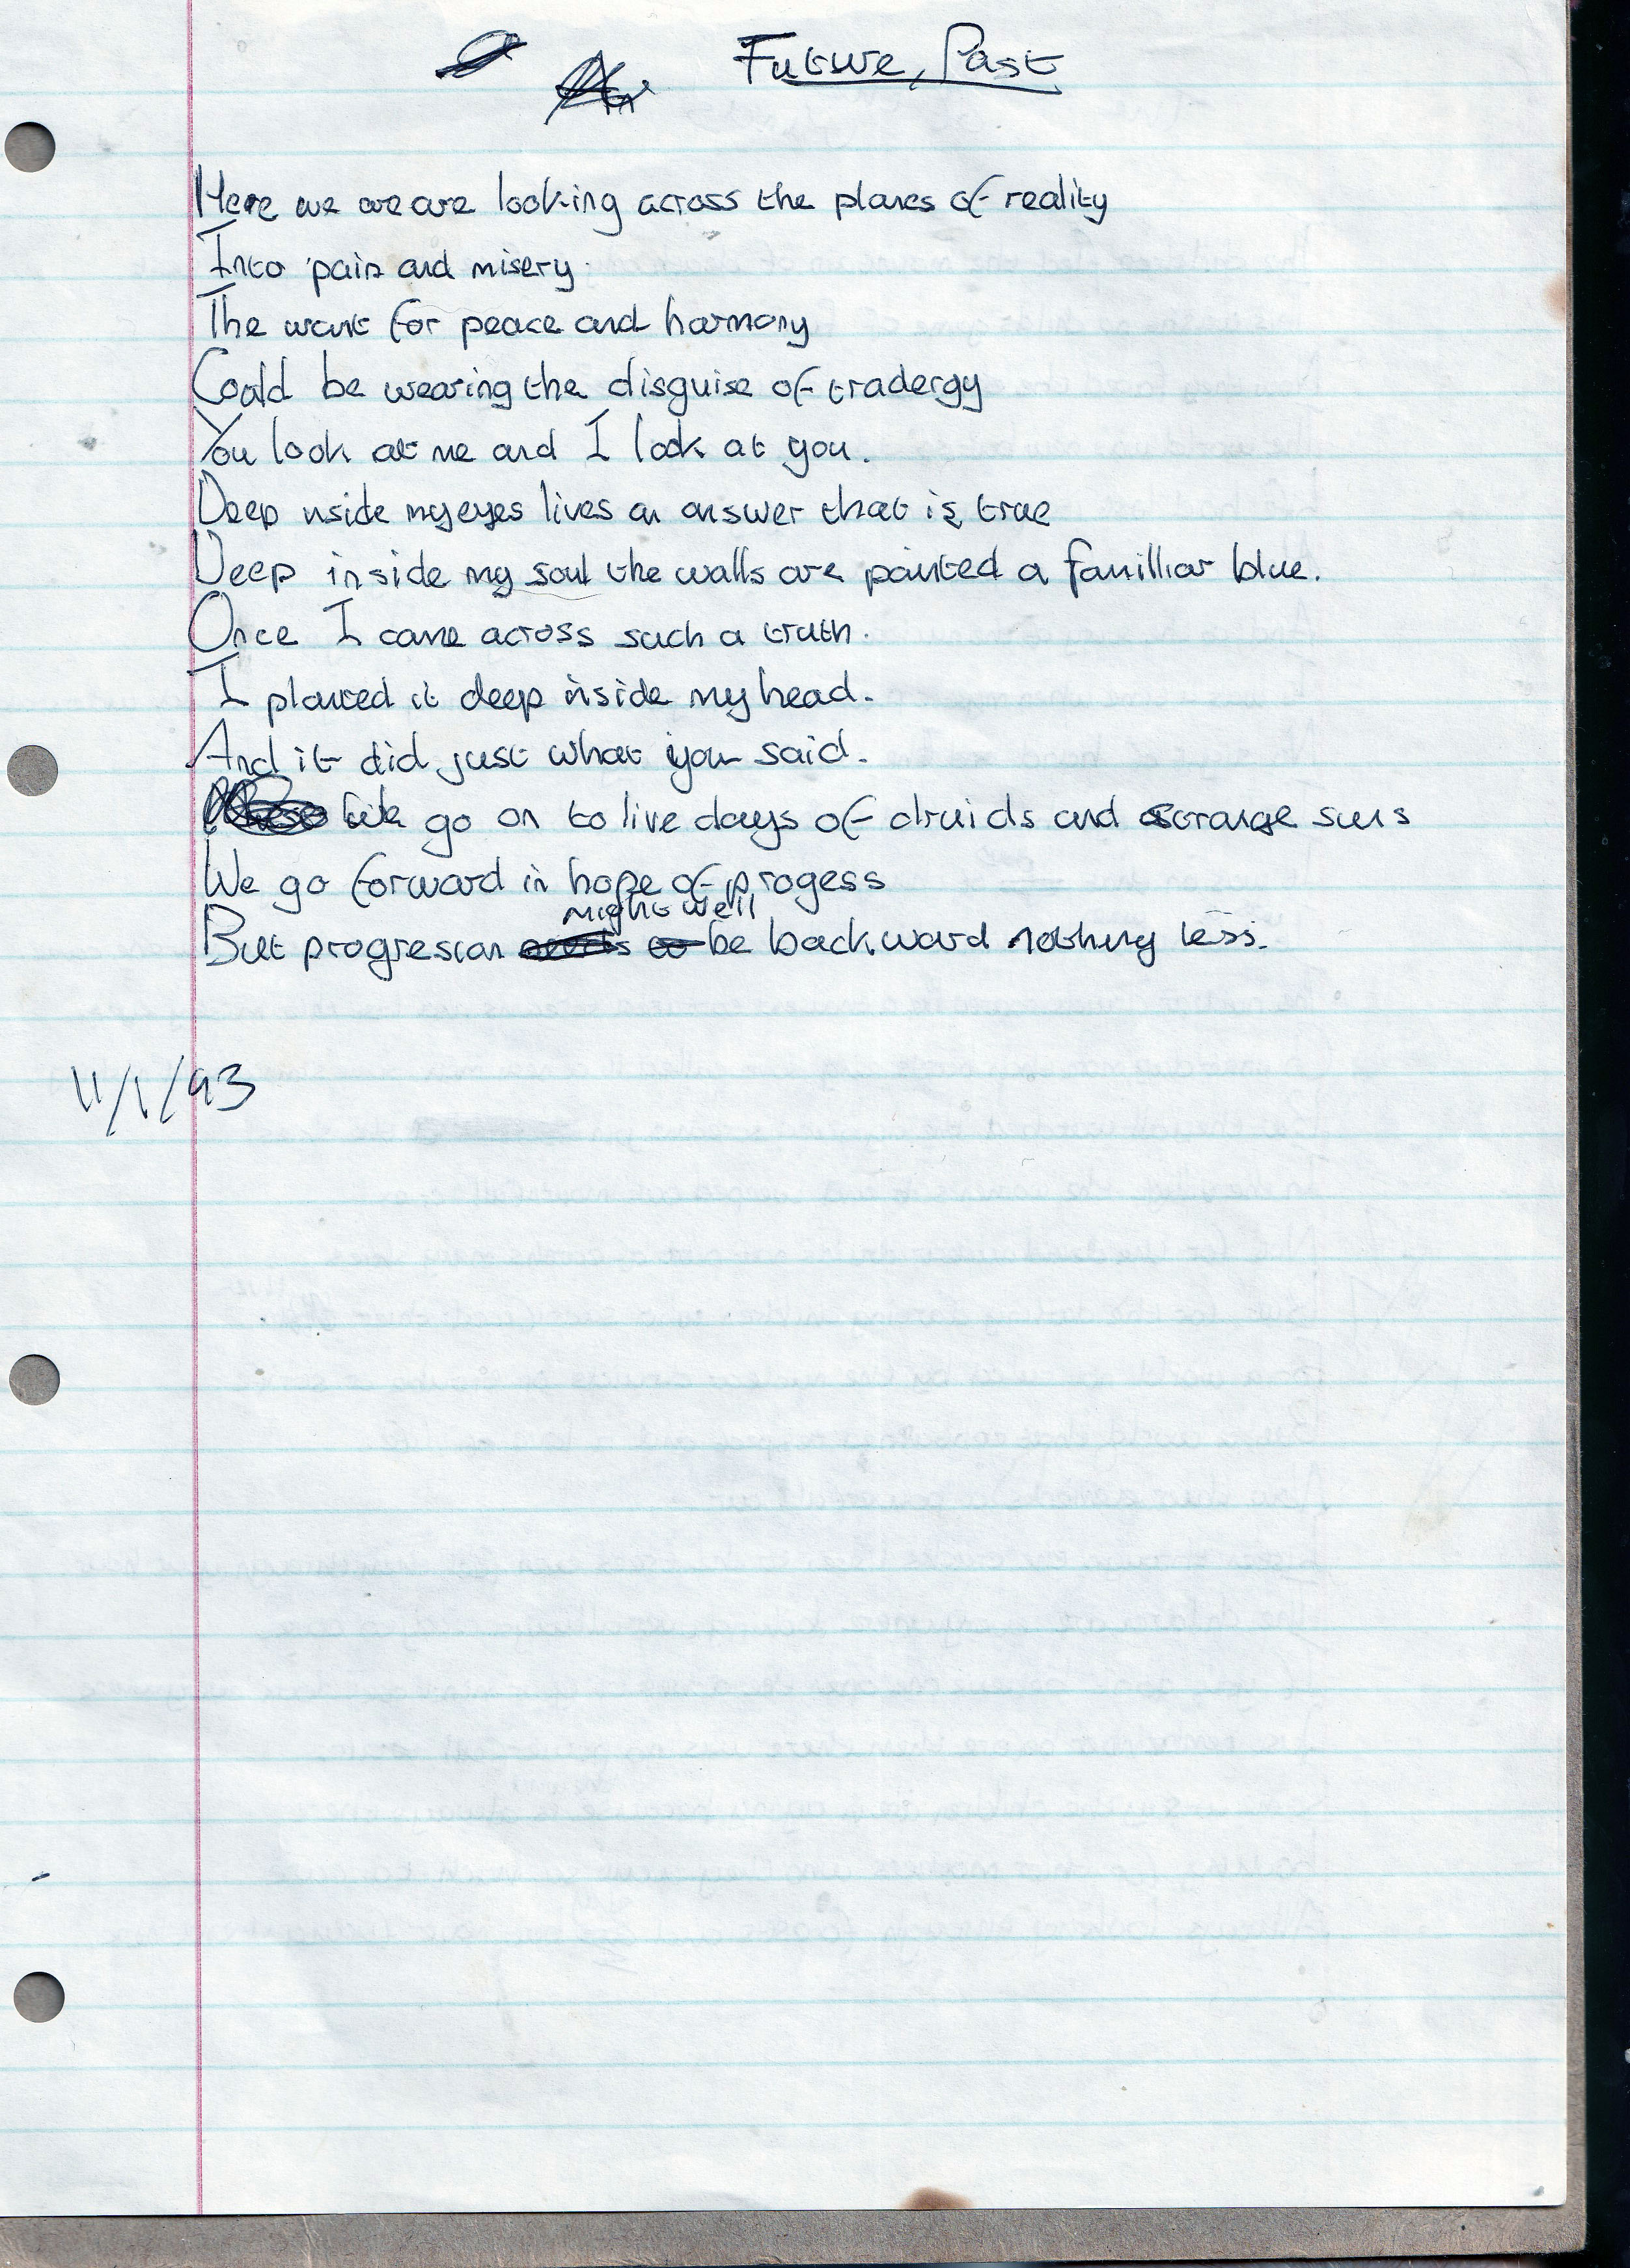 Future, Past
Here we we are looking across the planes of reality
Into pain and misery.
The want for peace and harmony
Could be wearing the disguise of tradergy
You look at me and I look at you.
Deep nside my eyes lives an answer that is true
Deep inside my soul the walls are painted a familliar blue.
Once I came across such a truth.
I planted it deep inside my head.
And it did just what you said.
We go on to live days of druids and orange suns
We go forward in hope of progess
might well
But progresion be backward nothing less.
11/1/93